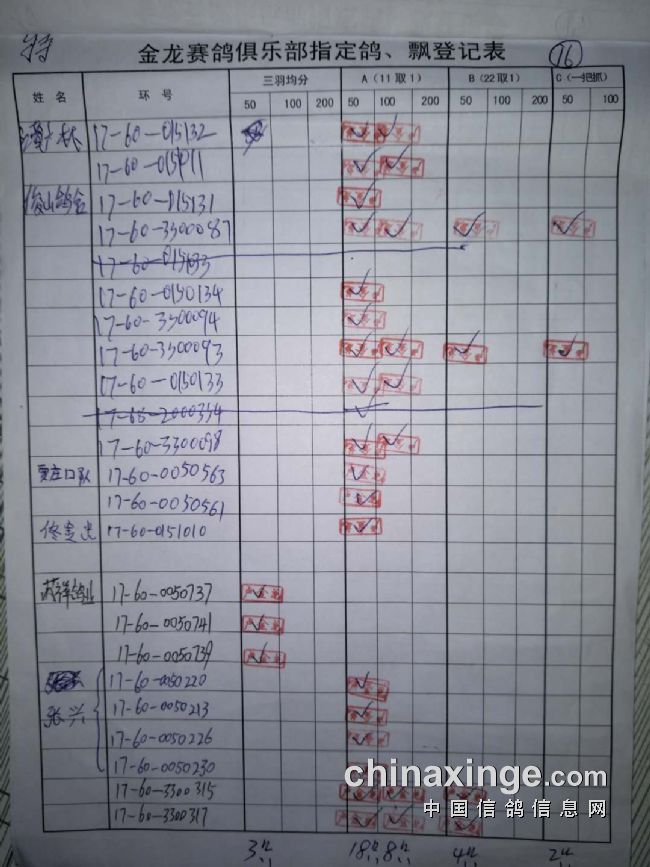 特
金龙赛鸽俱乐部指定鸽、飘登记表 16
姓名 环号 三羽均分 A（11取1） B（22取1） C（一把抓）
50 100 200 50 100 200 50 100 200 50 100
17-60-015132
17-60-015011
俊山鸽舍 17-60-015131
17-60-3300087
17-60-015133
17-60-0150134
17-60-3300094
17-60-3300093
17-60-0150133
17-60-2000354
17-60-3300098
17-60-0050563
17-60-0050561
17-60-0151010
17-60-0050737
17-60-0050741
17-60-0050739
17-60-0050220
张兴 17-60-0050213
17-60-0050226
17-60-0050230
17-60-3300315
17-60-3300317
chinaxinge.com
中国信鸽信息网
3 18 8 4 2